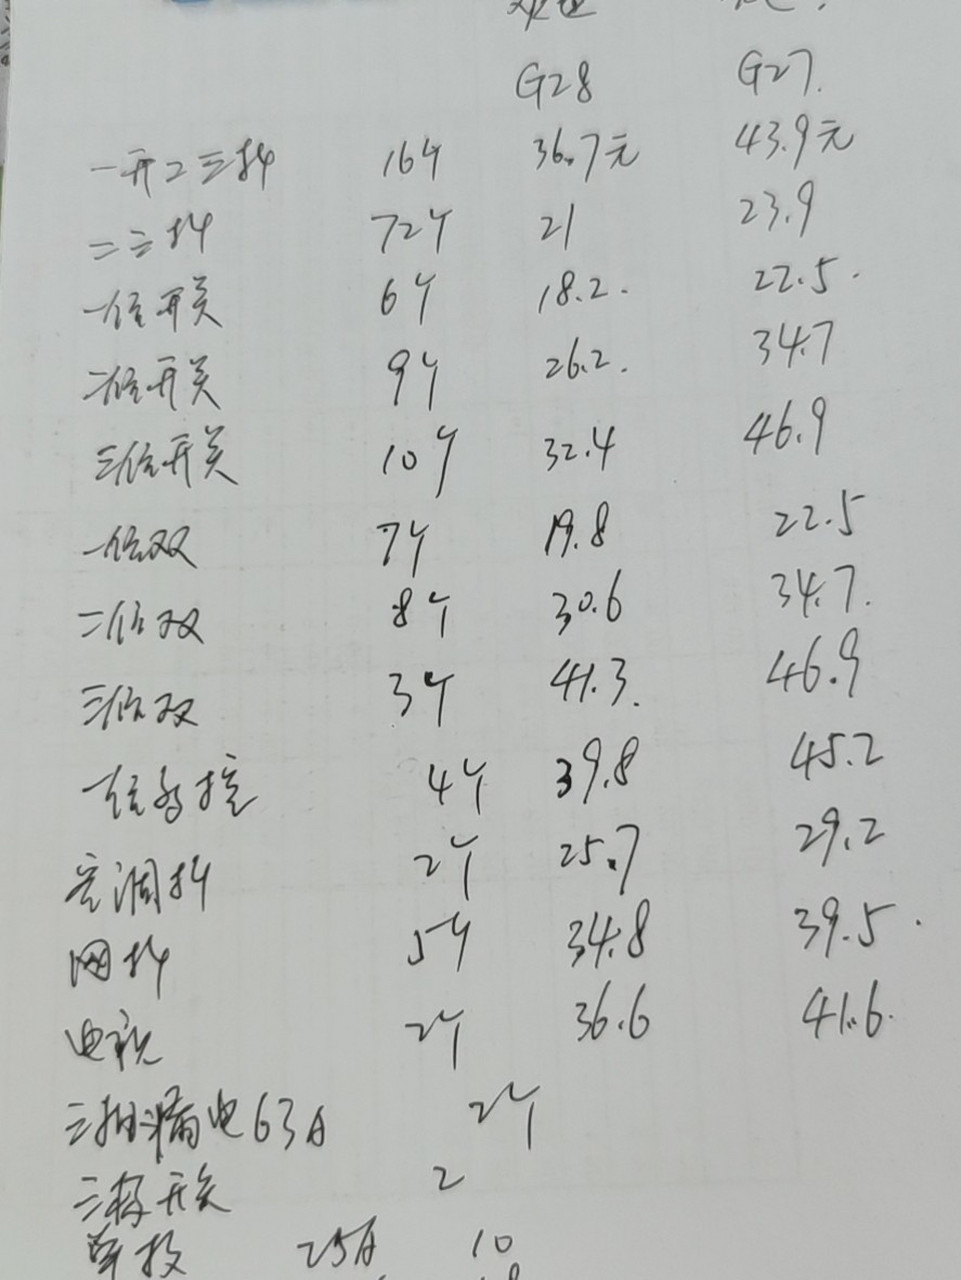 G28 G27.
一开二三插 16个 36.7元 43.9元
二三插 72个 21 23.9
一位开关 6个 18.2. 22.5.
二位开关 9个 26.2. 34.7
三位开关 10个 32.4 46.9
一位双 7个 19.8 22.5
二位双 8个 30.6 34.7.
三位双 3个 41.3. 46.9
一位多控 4个 39.8 45.2
空调插 2个 25.7 29.2
网插 5个 34.8 39.5.
电视 2个 36.6 41.6.
三相漏电63A 2个
三极开关 2
单极 25A 10